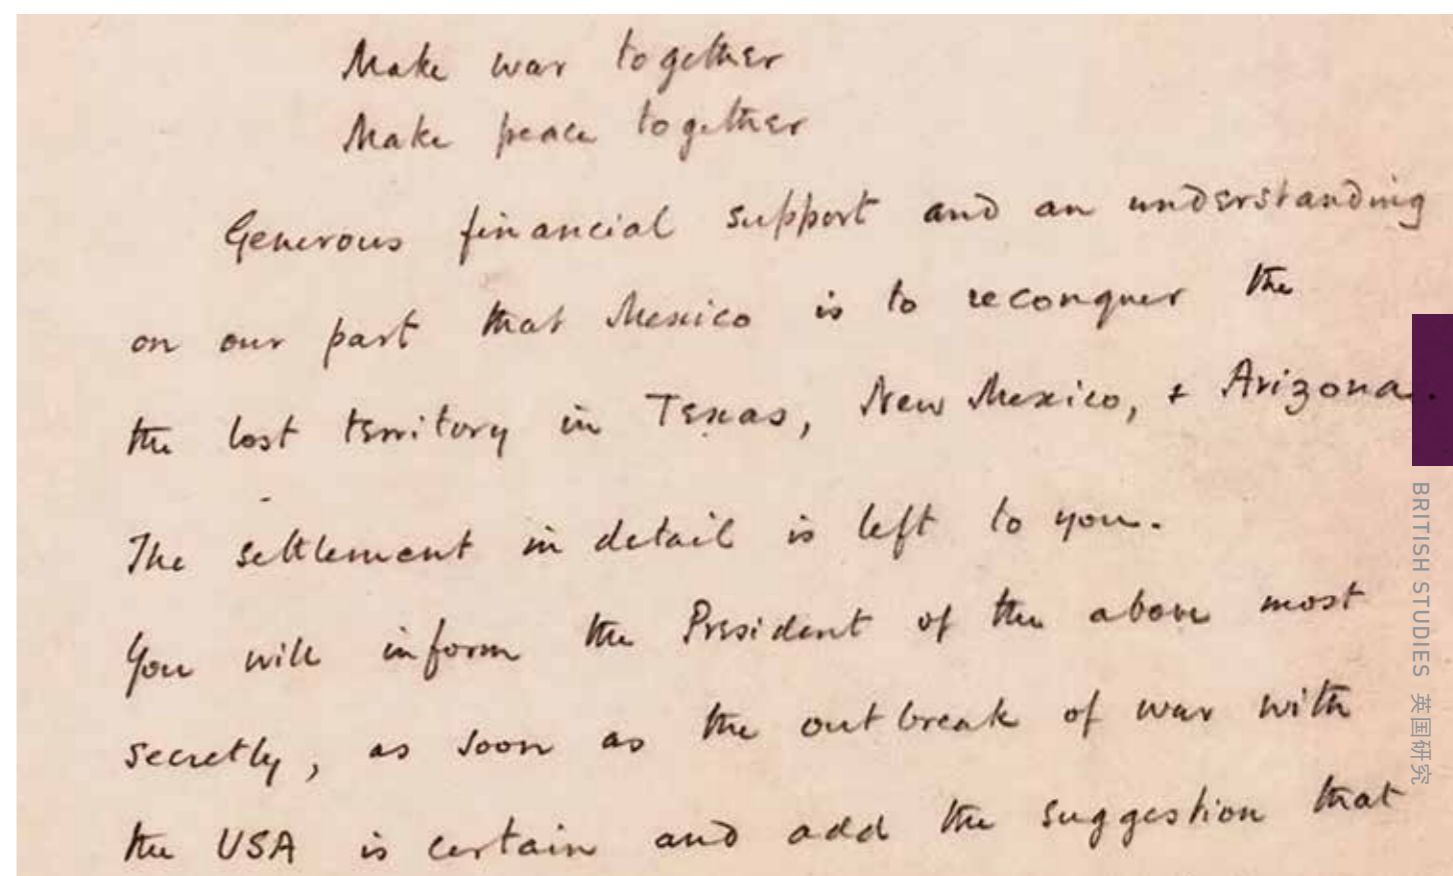 Make war together
Make peace together
Generous financial support and an understanding
on our part that Mexico is to reconquer the
the lost territory in Texas, New Mexico, + Arizona.
The settlement in detail is left to you.
You will inform the President of the above most
secretly, as soon as the outbreak of war with
the USA is certain and add the suggestion that
BRITISH STUDIES 英国研究